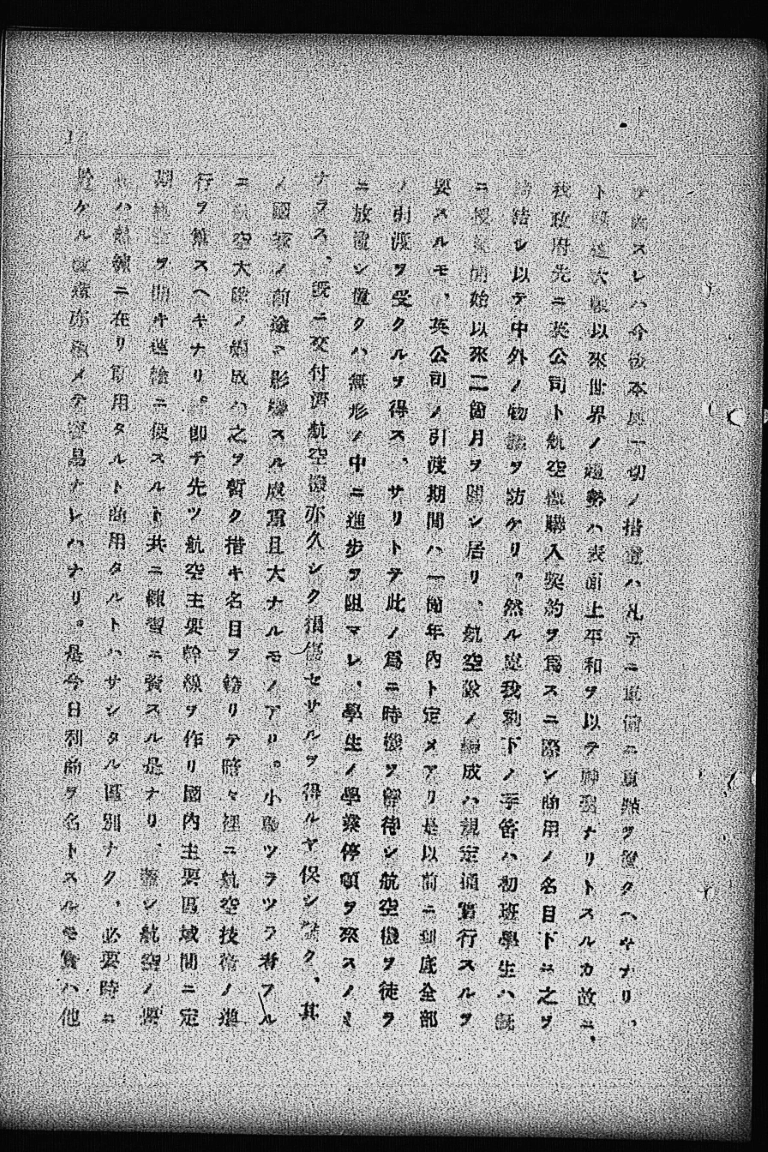 スレハ今後本 一切ノ措 ハ 二 ヲ置クヘキナリ、
ト 以來世界ノ趨勢ハ表面上平和ヲ以テ ナリトスルカ故ニ、
我政府先ニ英公司ト航空機購入契約ヲ爲スニ際シ商用ノ名目下ニ之ヲ
締結シ以テ中外ノ物議ヲ防ケリ。然ル處我 下ノ ハ初班學生ハ既
ニ授業開始以來二箇月ヲ閲シ居リ、航空 ノ編成ハ規定通實行スルヲ
要スルモ、英公司ノ引渡期間ハ一箇年内ト定メアリ是以前ニ到底全部
ノ引渡ヲ受クルヲ得ス、サリトテ此ノ爲ニ時機ヲ待シ航空機ヲ徒ラ
ニ放置シ置クハ無形ノ中ニ進步ヲ阻マレ、學生ノ學業停頓ヲ來スノミ
ナラス、既ニ交付濟航空機亦久シク損傷セサルヲ得ルヤ保シ難ク、其
ノ國家ノ前途ニ影響スル處重且大ナルモノアリ。小 ツラツラ考フル
ニ航空大隊ノ編成ハ之ヲ暫ク措キ名目ヲ藉リテ暗々裡ニ航空技術ノ進
行ヲ策スヘキナリ。卽チ先ツ航空主要幹線ヲ作リ國内主要區域間ニ定
期航空ヲ開キ運輸ニ便スルト共ニ練習ニ資スル是ナリ、蓋シ航空ノ要
ハ熟練ニ在リ軍用タルト商用タルトハサシタル區別ナク、必要時ニ
於ケル改 亦極メテ容易ナレハナリ。是今日利商ヲ名トスルモ實ハ他